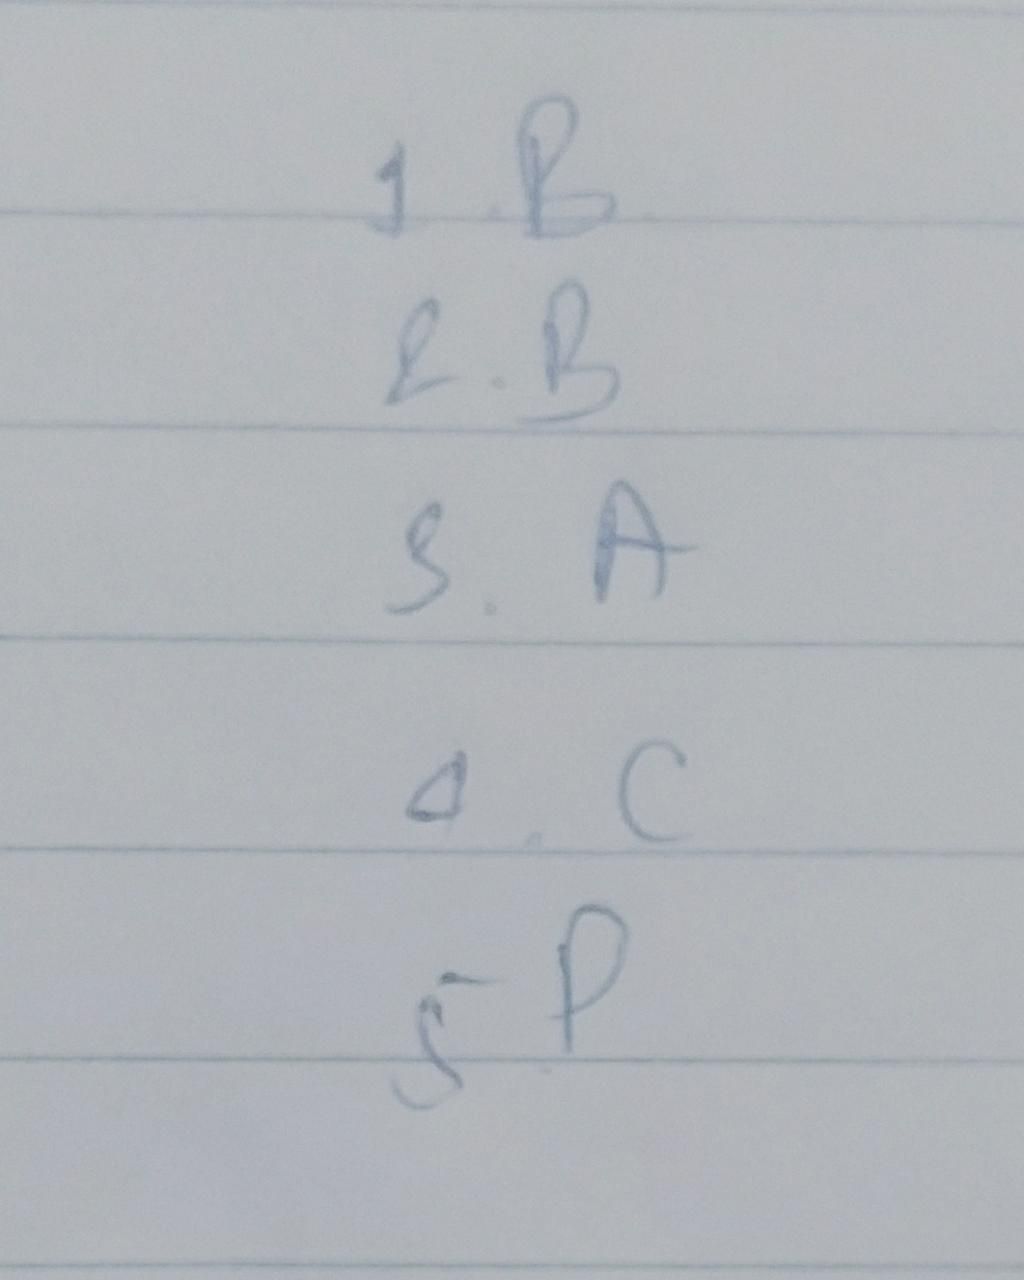 1. B
2. B
3. A
4. C
5. P